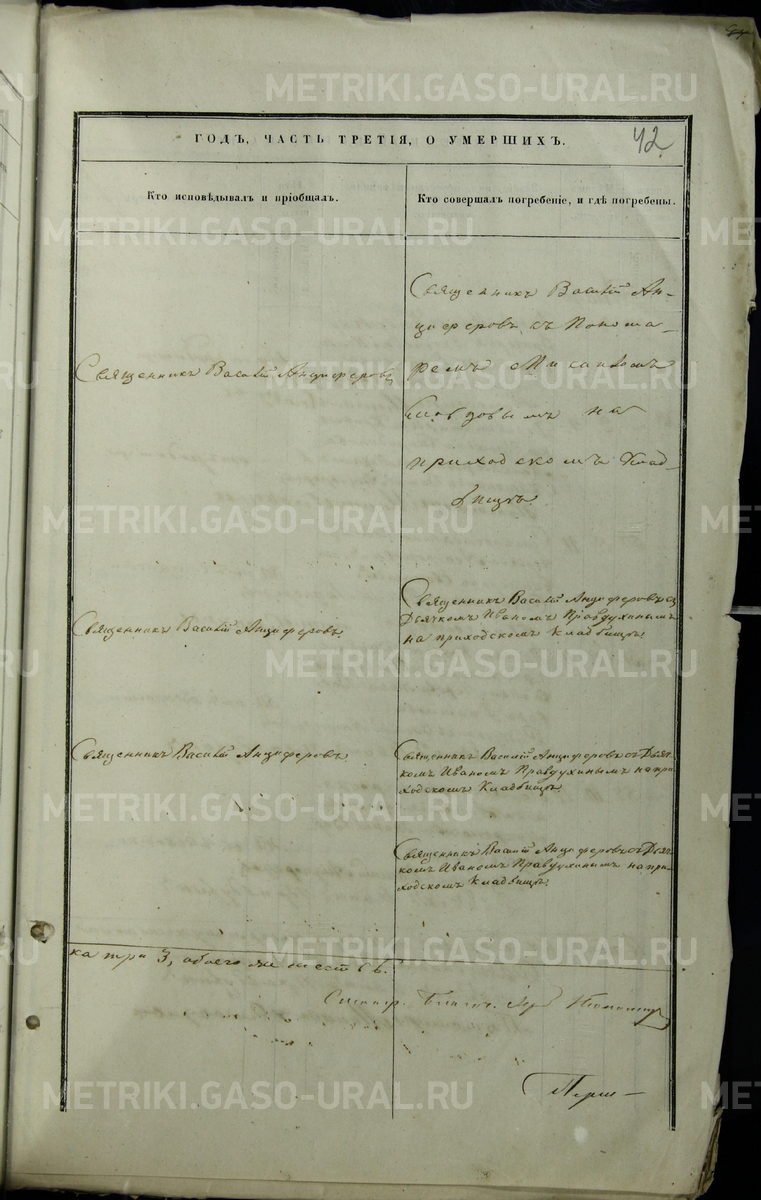 METRIKI.GASO-URAL.RU
42.
ГОДЪ, ЧАСТЬ ТРЕТІЯ, О УМЕРШИХЪ.
Кто исповѣдывалъ и пріобщалъ.
Кто совершалъ погребеніе, и гдѣ погребены.
Священникъ Василій Анциферовъ
Священникъ Василій Ан-
циферовъ съ Понома-
ремъ
на
приходскомъ Клад-
бищѣ.
Священникъ Василій Анциферовъ.
Священникъ Василій Анциферовъ съ
Дьячкомъ Иваномъ Правдухинымъ
на приходскомъ Кладбищѣ.
Священникъ Василій Анциферовъ.
Священникъ Василій Анциферовъ съ Дьяч-
комъ Иваномъ Правдухинымъ на при-
ходскомъ Кладбищѣ.
Священникъ Василій Анциферовъ съ Дьяч-
комъ Иваномъ Правдухинымъ на при-
ходскомъ Кладбищѣ.
ка три 3, обоего же шесть 6 ть.